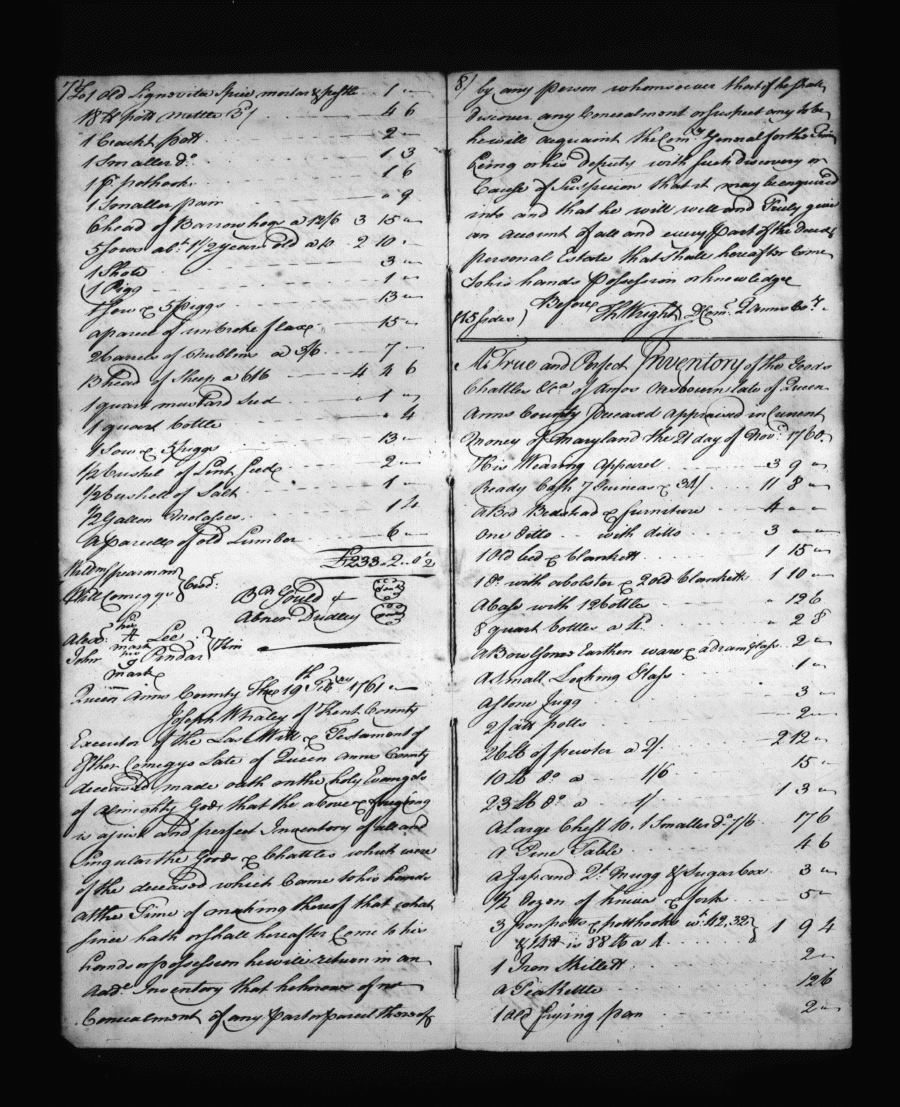 7/ 1 old Lignovita Spice mortar & pestle 1 "
18 lb pott mettle 3/ 4 6
1 Crackt pott 2 "
1 Smaller do 1 3
1 pr pothooks 1 6
1 Smaller pair " 9
6 head of Barrow hogs a 12/6 3 15 "
5 Sows abt 1 1/2 years old a 10 2 10 "
1 Shote 3 "
1 Piggs 1 "
1 Sow & 5 Piggs 13 "
a parcel of unbroke flax 15 "
2 barrels of Nubbins a 3/6 7 "
13 head of Sheep a 6/6 4 4 6
1 quart mustard Seed " 1 "
1 quart bottle " 4
1 Sow & 5 piggs 13 "
1/2 bushel of Lint Seed 2 "
1/2 bushell of Salt 1 "
1/2 Gallon Molasses 1 4
a parcell of old Lumber 6 "
£233 . 2 . 0 1/2
Willm Spearman
Will Comegys } Credrs
Bn Gould
Abner Dudley
Alexr his mark Lee
John his mark Pindar } Kin
Queen Anns County the 19th 1761
Joseph Whaley of Kent County
Executor of the Last Will & Testament of
Esther Comegys Late of Queen Anns County
deceased made oath on the holy Evangels
of almighty God that the above & foregoing
is a Just and perfect Inventory of all and
Singular the Goods & Chattles which were
of the deceased which Came to his hands
at the Time of making thereof that what
since hath or shall hereafter Come to his
hands or possession he will return in an
Addl Inventory that he knows of no
Concealment of any Part or parcel thereof
8/ by any person whomsoever that if he Shall
discover any Concealment or suspect any to be
he will acquaint the Comry General for the Time
being or his deputy with such discovery or
Cause of Suspicion that it may be enquired
into and that he will well and Truly give
an account of all and every Part of the deceased
personal Estate that Shall hereafter Come
to his hands Possession or knowledge
Before Thl Wright D Comry Q Anns Coty
175 Sides
A True and Perfect Inventory of the Goods
Chattles &ca of Amos late of Queen
Anns County deceased appraised in Current
Money of Maryland the 21 day of Novr 1760
His Wearing apparel 3 9 "
Ready Cash 7 Guineas & 34/ 11 8 "
A Bed Bedstead & furniture 4 " "
one ditto with ditto 3 " "
1 Old bed & blankett 1 15 "
1 do with a bolster & 2 old blanketts 1 10 "
A Case with 12 bottles " 12 6
8 quart bottles a 4d " 2 8
A Bowl Some Earthen ware & a dram Glass 2 "
A Small Looking Glass 1 "
A Stone Jugg 3 "
2 fatt potts 2 "
26 lb of pewter a 2/ 2 12 "
10 lb do a 1/6 15 "
23 lb do a 1/ 1 3 "
A Large Chest 10/ 1 Smaller do 7/6 17 6
A Pine Table 4 6
A Japand Qt Mugg & Sugar box 3 "
1/2 Dozen of knives & forks 5 "
3 Iron potts & potthooks wt 42, 32
& 14 lb is 88 lb a 4 } 1 9 4
1 Iron Skillett 2 "
A Tea Kettle 12 6
1 old frying pan 2 "